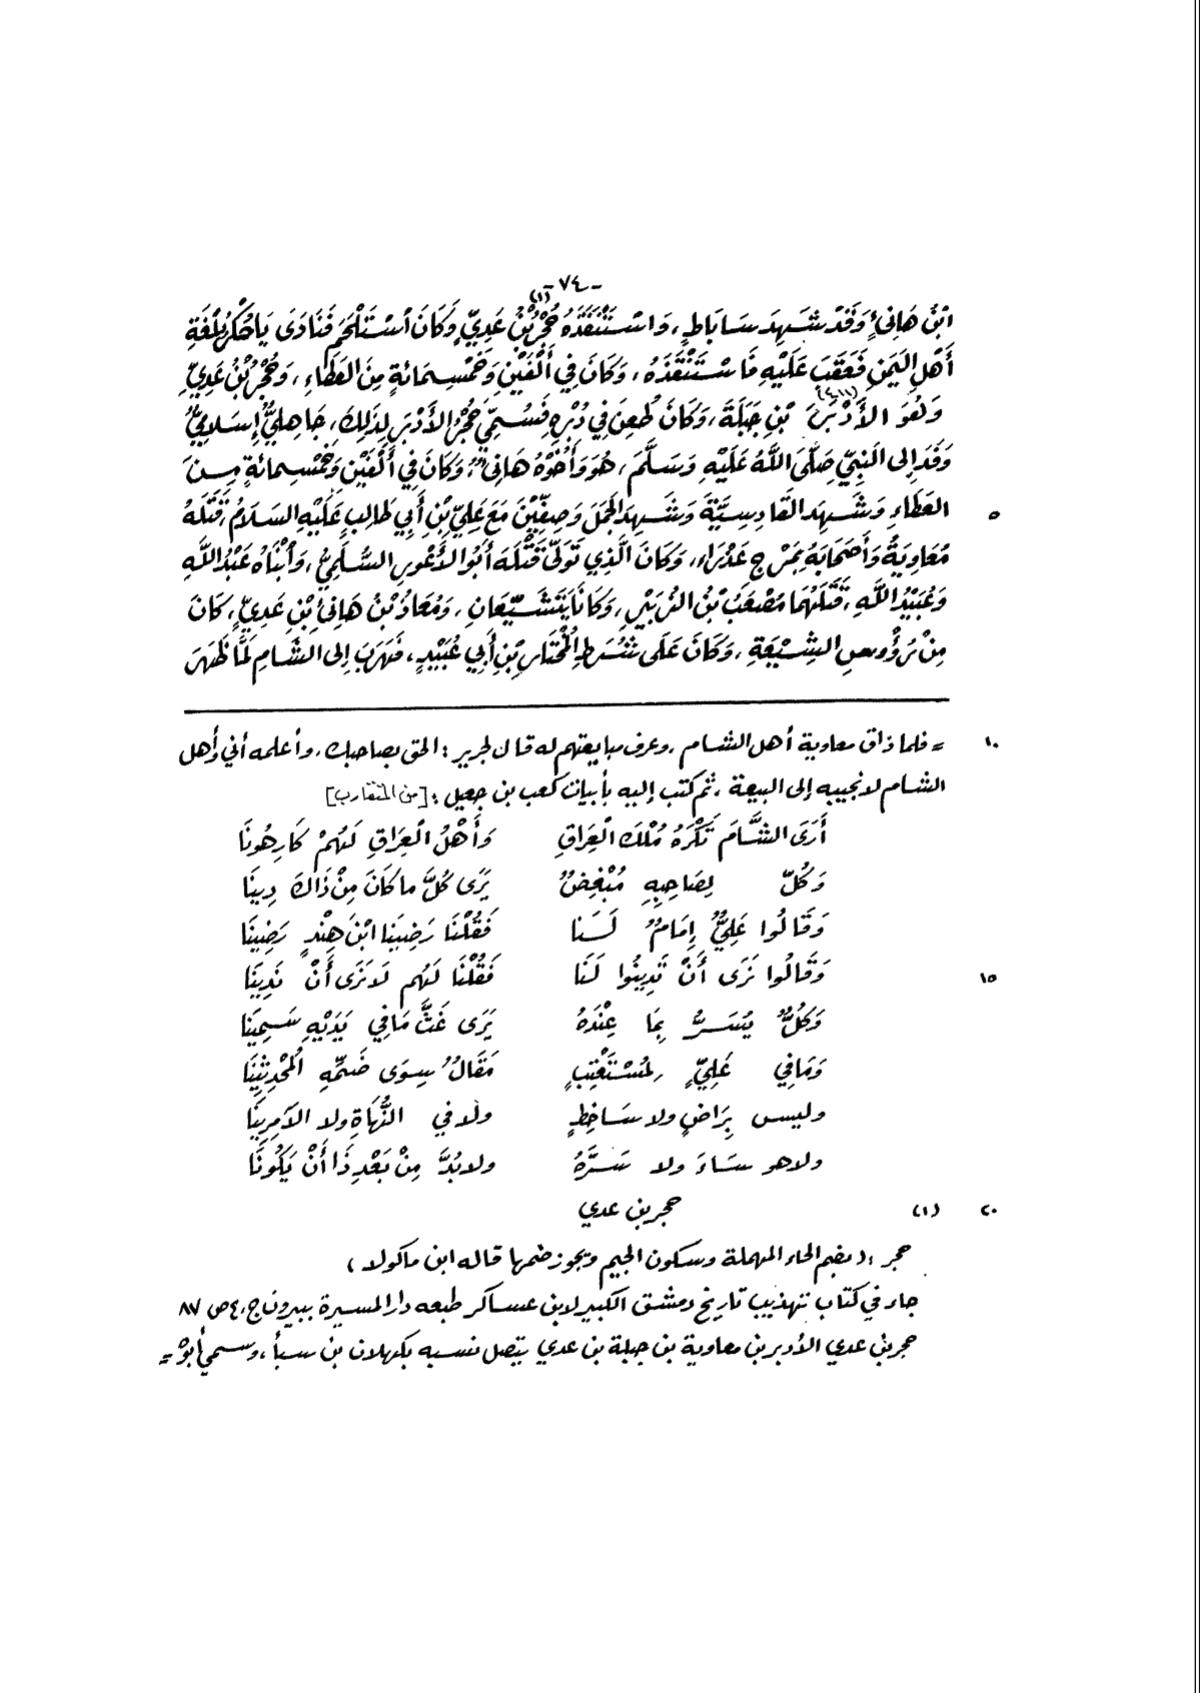 -٧٤-
ابْنُ هَانِئٍ وَقَدْ شَهِدَ سَابَاطٍ، وَاسْتَنْقَذَهُ حُجْرُ بْنُ عَدِيٍّ (١) وَكَانَ اسْتَلْحَمَ فَنَادَى يَا حُكْرُ بِلُغَةِ
أَهْلِ اليَمَنِ فَعَقَبَ عَلَيْهِ فَاسْتَنْقَذَهُ، وَكَانَ فِي أَلْفَيْنِ وَخَمْسِمَائَةٍ مِنَ العَطَاءِ، وَحُجْرُ بْنُ عَدِيٍّ
وَهُوَ الأَدْبَرُ بْنِ جَبَلَةَ، وَكَانَ طُعِنَ فِي دُبْرِهِ فَسُمِّيَ حُجْرُ الأَدْبَرَ لِذَلِكَ، جَاهِلِيٌّ إِسْلَامِيٌّ
وَفَدَ إِلى النَّبِيِّ صَلَّى اللَّهُ عَلَيْهِ وَسَلَّمَ، هُوَ وَأَخُوْهُ هَانِئٌ، وَكَانَ فِي أَلْفَيْنِ وَخَمْسِمائَةٍ مِنَ
العَطَاءِ وَشَهِدَ القَادِسِيَّةَ وَشَهِدَ الجَمَلَ وَصِفِّيْنَ مَعَ عَلِيِّ بْنِ أَبِي طَالِبٍ عَلَيْهِ السَلَامُ، قَتَلَهُ ٥
مُعَاوِيَةُ وَأَصْحَابَهُ بِمَرْجِ عَذْرَاءَ، وَكَانَ الَّذِي تَوَلَّى قَتْلَهُ أَبُو الأَعْوَرِ السُّلَمِيُّ، وَابْنَاهُ عَبْدُ اللَّهِ
وَعُبَيْدُ اللَّهِ، قَتَلَهُمَا مُصْعَبُ بْنُ الزُبَيْرِ، وَكَانَا يَتَشَيَّعَانِ، وَمُعَاذُ بْنُ هَانِئِ بْنِ عَدِيٍّ، كَانَ
مِنْ رُؤُوسِ الشِيْعَةِ، وَكَانَ عَلَى شُرَطِ المُخْتَارِ بْنِ أَبِي عُبَيْدٍ، فَهَرَبَ إِلى الشَامِ لَمَّا ظَهَرَ
١٠ = فلما ذاق معاوية أهل الشام، وعرف مبايعتهم له قال لجرير : الحق بصاحبك، وأعلمه أني وأهل
الشام لا نجيبه إلى البيعة، ثم كتب إليه بأبيات كعب بن جعيل : [من المتقارب]
أَرَى الشَّامَ تَكْرَهُ مُلْكَ العِرَاقِ وَأَهْلُ العِرَاقِ لَهُمْ كَارِهُونَا
وَكُلٌّ لِصَاحِبِهِ مُبْغِضٌ يَرَى كُلَّ ما كَانَ مِنْ ذَاكَ دِينَا
وَقَالُوا عَلِيٌّ إِمَامٌ لَنَا فَقُلْنَا رَضِينَا ابْنَ هِنْدٍ رَضِينَا
وَقَالُوا نَرَى أَنْ تَدِينُوا لَنَا فَقُلْنَا لَهُم لَا نَرَى أَنْ نَدِينَا ١٥
وَكُلٌّ يُسَرُّ بِمَا عِنْدَهُ يَرَى غَثَّ مَا فِي يَدَيْهِ سَمِينَا
وَمَا فِي عَلِيٍّ لِمُسْتَعْتِبٍ مَقَالٌ سِوَى ضَمِّهِ المُحْدِثِينَا
وليس بِرَاضٍ ولا سَاخِطٍ ولا في النُّهَاةِ ولا الآمِرِينَا
ولا هو سَاءَ ولا سَرَّهُ ولا بُدَّ مِنْ بَعْدِ ذَا أَنْ يَكُونَا
٢٠ (١) حجر بن عدي
حجر : (بضم الحاء المهملة وسكون الجيم ويجوز ضمها قاله ابن ماكولا)
جاء في كتاب تهذيب تاريخ دمشق الكبير لابن عساكر طبعه دار المسيرة ببيروت ج، ٤ ص ٨٧
حجر بن عدي الأدبر بن معاوية بن جبلة بن عدي يتصل نسبه بكهلان بن سبأ، وسمي أبوه =